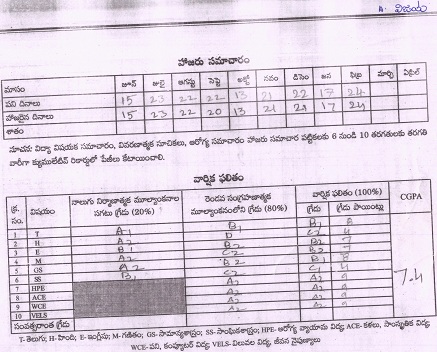 A. విజయ
హాజరు సమాచారం
మాసం జూన్ జులై ఆగష్టు సెప్టె అక్టో నవం డిసెం జన ఫిబ్ర మార్చి ఏప్రిల్
పని దినాలు 15 23 22 22 13 21 22 17 24
హాజరైన దినాలు 15 23 22 20 13 21 21 17 24
శాతం
సూచన: విద్యా విషయక సమాచారం, వివరణాత్మక సూచికలు, ఆరోగ్య సమాచారం హాజరు సమాచార పట్టికలకు 6 నుండి 10 తరగతులకు తరగతి
వారీగా క్యుములేటివ్ రికార్డులో పేజీలు కేటాయించాలి.
వార్షిక ఫలితం
క్ర. సం. విషయం నాలుగు నిర్మాణాత్మక మూల్యాంకనాల సగటు గ్రేడు (20%) రెండవ సంగ్రహణాత్మక మూల్యాంకనంలోని గ్రేడు (80%) వార్షిక ఫలితం (100%) గ్రేడు గ్రేడు పాయింట్లు CGPA
1 T A1 B1 B1 8
2 H A2 D C2 4
3 E B1 B2 B2 7
4 M A2 B2 B2 7
5 GS A2 B2 B1 8
6 SS B1 C2 C1 4
7 HPE A2 A2 9
8 ACE A2 A2 9
9 WCE A2 A2 9
10 VELS A2 A2 9
7.4
సంవత్సరాంత గ్రేడు
T-తెలుగు; H-హింది; E-ఇంగ్లీషు; M-గణితం; GS-సామాన్యశాస్త్రం; SS-సాంఘికశాస్త్రం; HPE-ఆరోగ్య వ్యాయామ విద్య; ACE-కళలు, సాంస్కృతిక విద్య;
WCE-పని, కంప్యూటర్ విద్య; VELS-విలువల విద్య, జీవన నైపుణ్యాలు